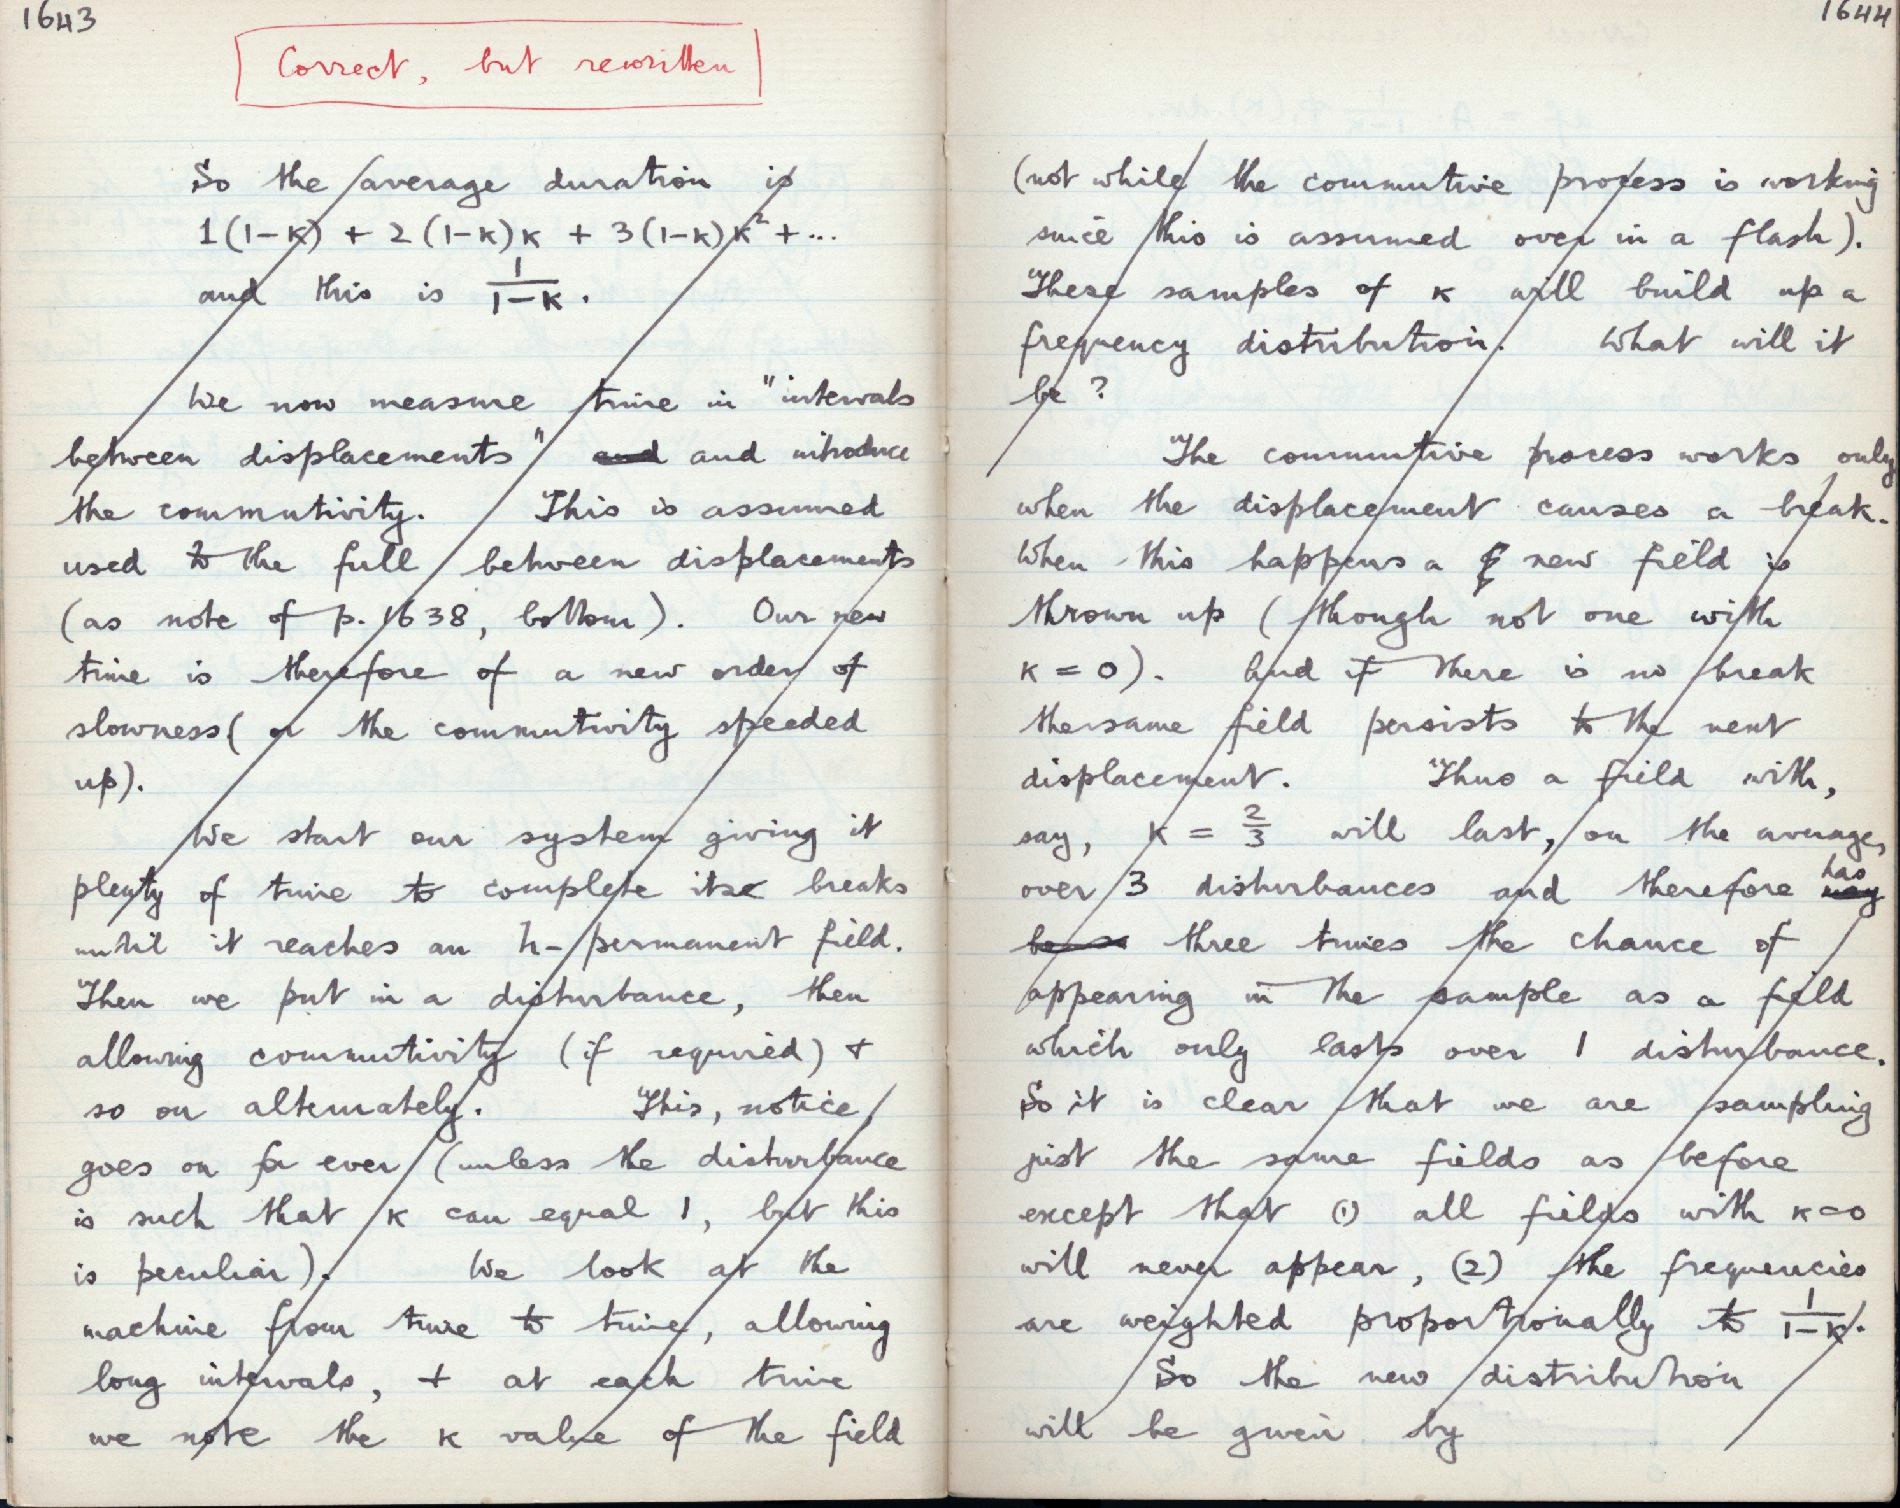 1643
Correct, but rewritten
So the average duration is
1(1-κ) + 2(1-κ)κ + 3(1-κ)κ² + ...
and this is 1/(1-κ).
We now measure time in "intervals
between displacements" and and introduce
the commutivity. This is assumed
used to the full between displacements
(as note of p. 1638, bottom). Our new
time is therefore of a new order of
slowness (or the commutivity speeded
up).
We start our system giving it
plenty of time to complete its breaks
until it reaches an h-permanent field.
Then we put in a disturbance, then
allowing commutivity (if required) +
so on alternately. This, notice,
goes on for ever (unless the disturbance
is such that κ can equal 1, but this
is peculiar). We look at the
machine from time to time, allowing
long intervals, + at each time
we note the κ value of the field
1644
(not while the commutive process is working
since this is assumed over in a flash).
These samples of κ will build up a
frequency distribution. What will it
be?
The commutive process works only
when the displacement causes a break.
When this happens a new field is
thrown up (though not one with
κ = 0). And if there is no break
the same field persists to the next
displacement. Thus a field with,
say, κ = 2/3 will last, on the average,
over 3 disturbances and therefore has
three times the chance of
appearing in the sample as a field
which only lasts over 1 disturbance.
So it is clear that we are sampling
just the same fields as before
except that (1) all fields with κ=0
will never appear, (2) the frequencies
are weighted proportionally to 1/(1-κ).
So the new distribution
will be given by